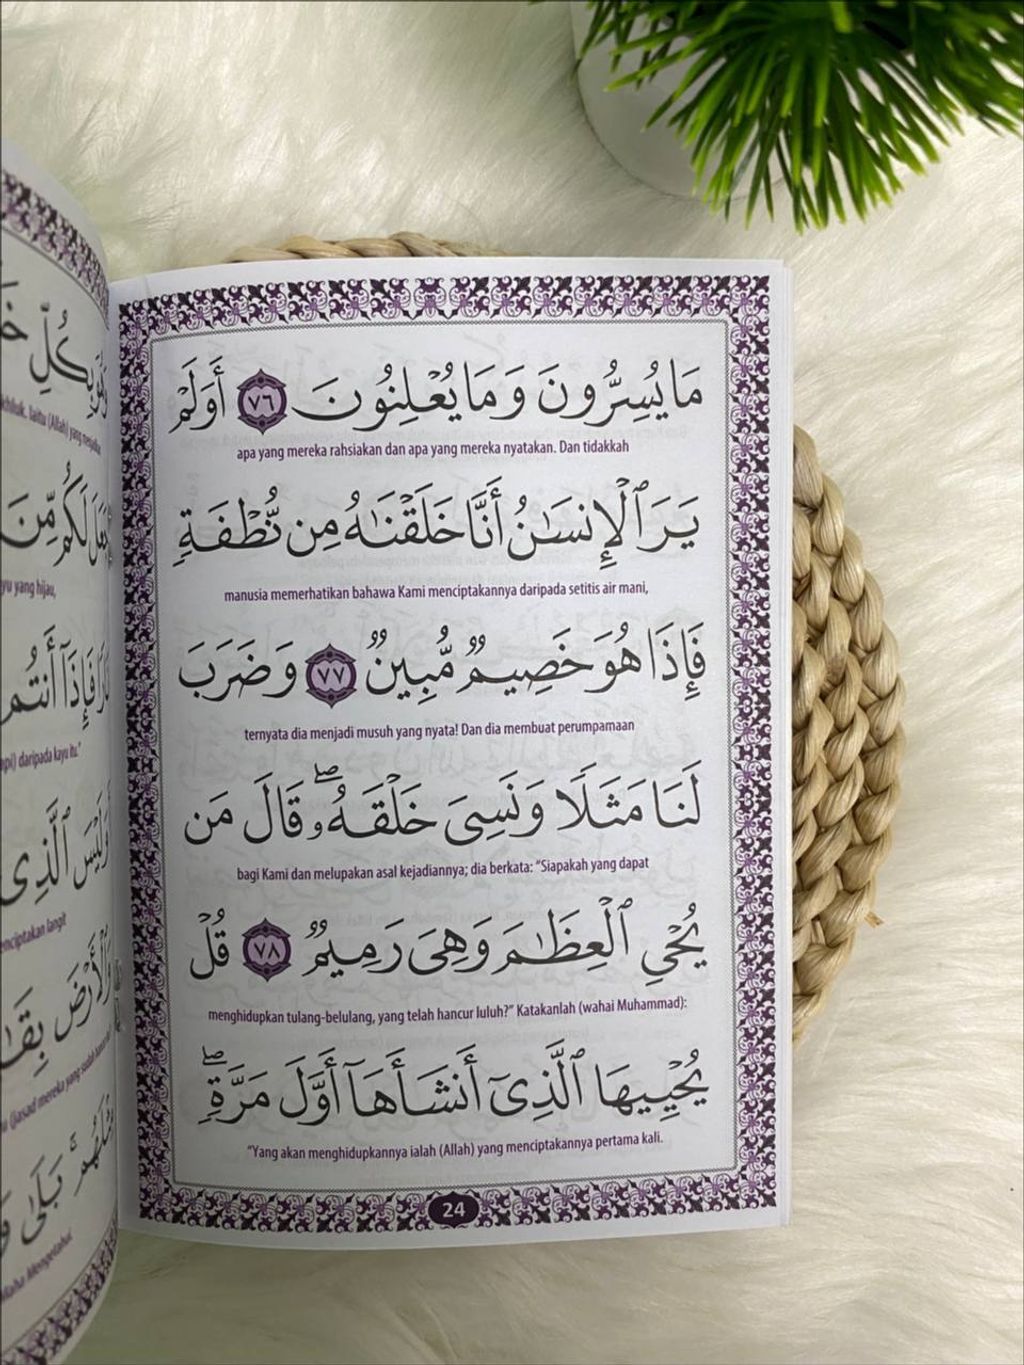 مَا يُسِرُّونَ وَمَا يُعْلِنُونَ ٧٦ أَوَلَمْ
apa yang mereka rahsiakan dan apa yang mereka nyatakan. Dan tidakkah
يَرَ ٱلْإِنسَـٰنُ أَنَّا خَلَقْنَـٰهُ مِن نُّطْفَةٍ
manusia memerhatikan bahawa Kami menciptakannya daripada setitis air mani,
فَإِذَا هُوَ خَصِيمٌ مُّبِينٌ ٧٧ وَضَرَبَ
ternyata dia menjadi musuh yang nyata! Dan dia membuat perumpamaan
لَنَا مَثَلًا وَنَسِىَ خَلْقَهُۥ ۖ قَالَ مَن
bagi Kami dan melupakan asal kejadiannya; dia berkata: “Siapakah yang dapat
يُحْىِ ٱلْعِظَـٰمَ وَهِىَ رَمِيمٌ ٧٨ قُلْ
menghidupkan tulang-belulang, yang telah hancur luluh?” Katakanlah (wahai Muhammad):
يُحْيِيهَا ٱلَّذِىٓ أَنشَأَهَآ أَوَّلَ مَرَّةٍ ۖ
“Yang akan menghidupkannya ialah (Allah) yang menciptakannya pertama kali.
24
بِكُلِّ
(Allah) yang
لَكُم مِّنَ
yang hijau,
فَإِذَآ أَنتُم
daripada kayu itu.”
ٱلَّذِى
langit
بَلَىٰ
Maha Mengetahui.